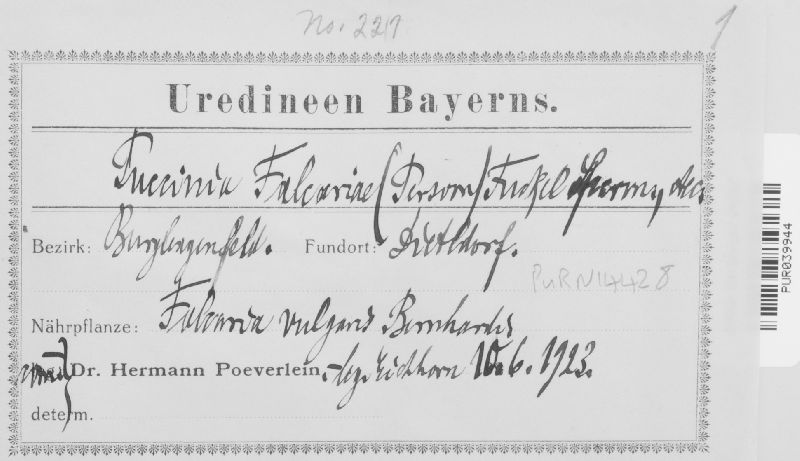 No. 221
1
Uredineen Bayerns.
Puccinia Falcariae (Persoon) Fuckel Sperm., Aec.
Bezirk: Burglengenfeld. Fundort: Dietldorf.
PUR N14428
Nährpflanze: Falcaria vulgaris Bernhardi
Dr. Hermann Poeverlein. leg. Eichhorn 10.6.1923.
determ.
PUR039944